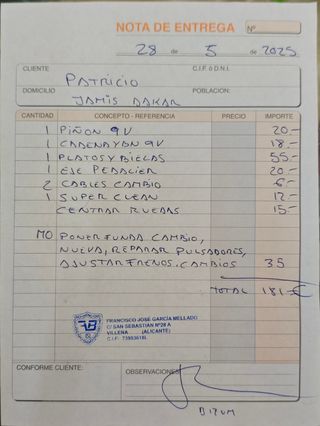 NOTA DE ENTREGA Nº
28 de 5 de 2025
CLIENTE PATRICIO C.I.F. ó D.N.I.
DOMICILIO JAMIS DAKAR POBLACION:
CANTIDAD CONCEPTO - REFERENCIA PRECIO IMPORTE
1 PIÑON 9V 20.-
1 CADENA YBN 9V 18.-
1 PLATOS Y BIELAS 55.-
1 EJE PEDALIER 20.-
2 CABLES CAMBIO 6.-
1 SUPER CLEAN 12.-
CENTRAR RUEDAS 15.-
MO PONER FUNDA CAMBIO,
NUEVA, REPARAR PULSADORES,
AJUSTAR FRENOS, CAMBIOS 35
TOTAL 181.-€
FRANCISCO JOSÉ GARCÍA MELLADO
C/ SAN SEBASTIÁN Nº28 A
VILLENA (ALICANTE)
C.I.F: 73993618L
CONFORME CLIENTE: OBSERVACIONES:
BIZUM